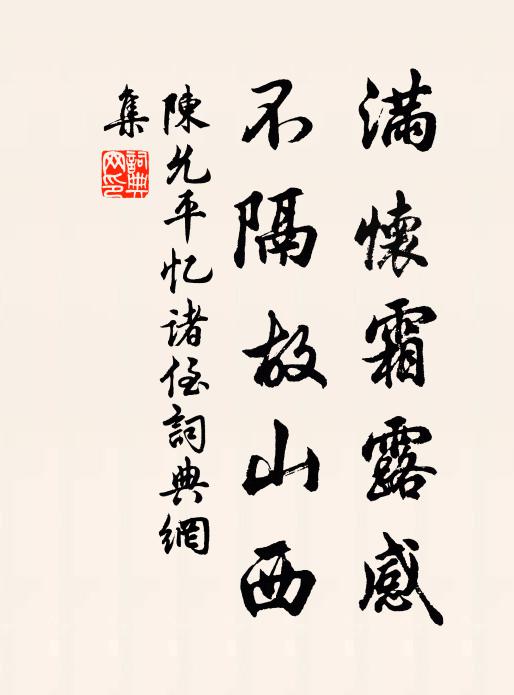 滿懷霜露感
不隔故山西
陳允平忆諸侄詞典網
集
詞典网印